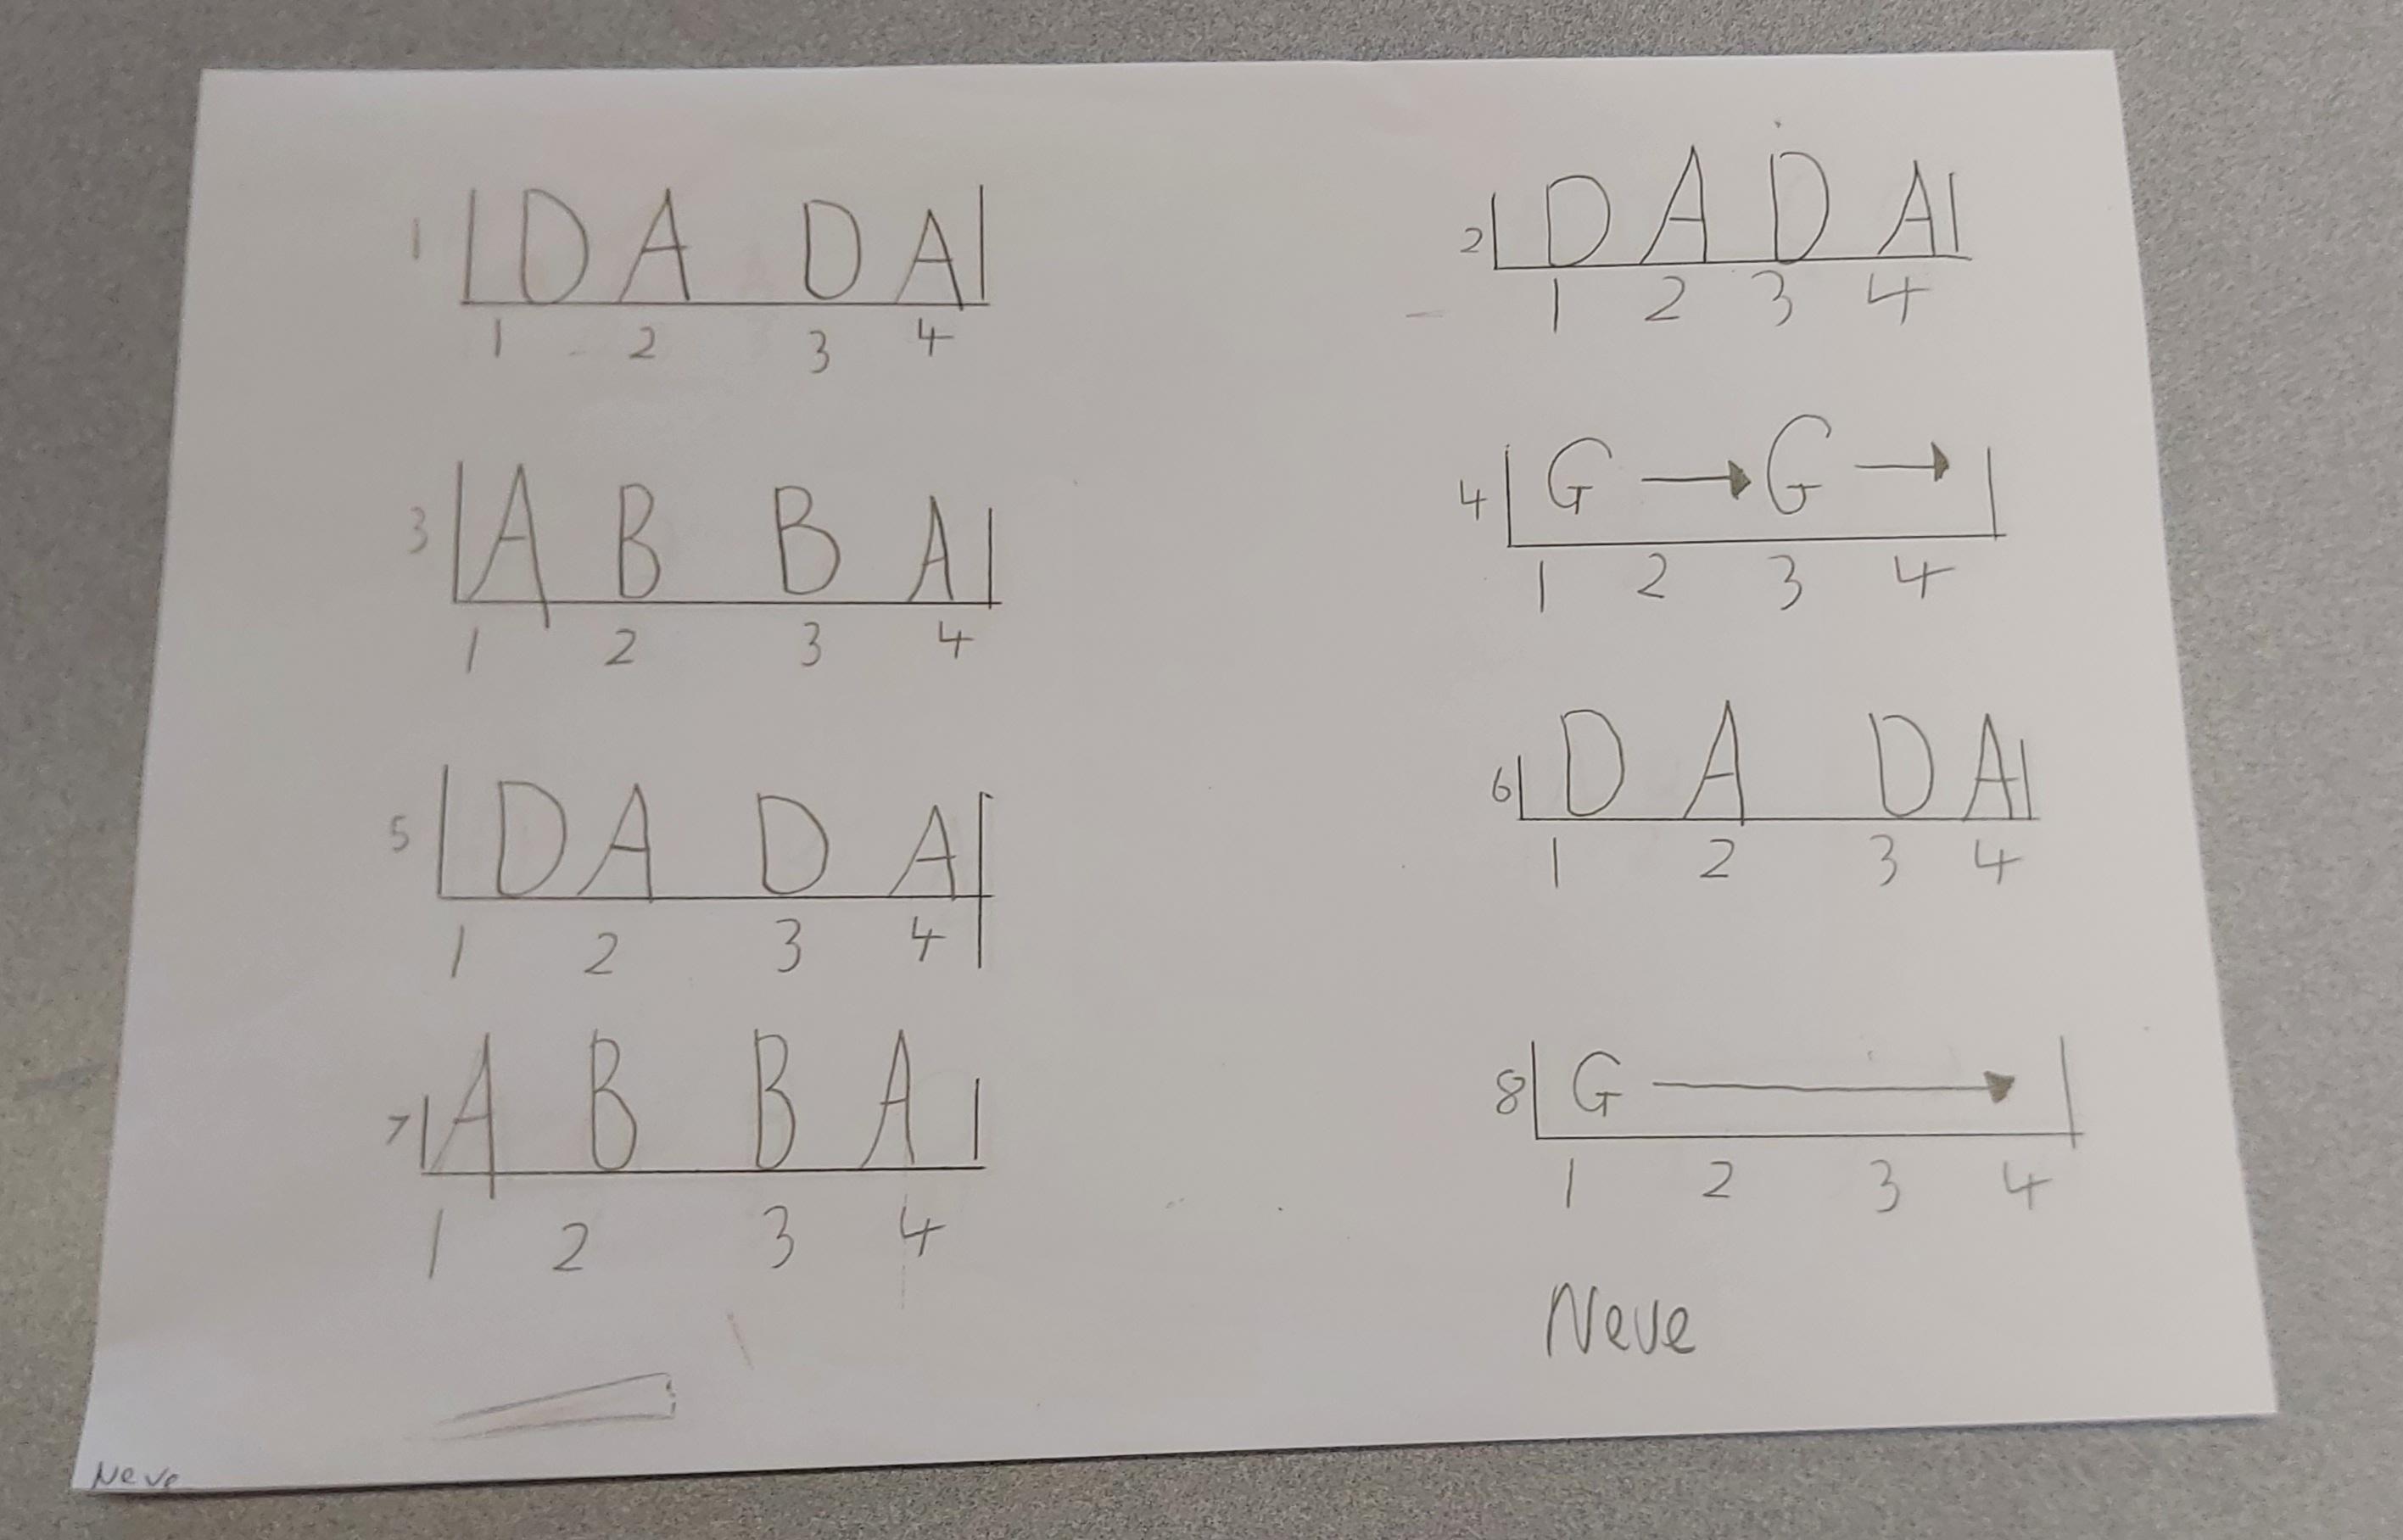 1 | D A D A |
1 2 3 4
2 | D A D A |
1 2 3 4
3 | A B B A |
1 2 3 4
4 | G → G → |
1 2 3 4
5 | D A D A |
1 2 3 4
6 | D A D A |
1 2 3 4
7 | A B B A |
1 2 3 4
8 | G → |
1 2 3 4
Neve
Neve